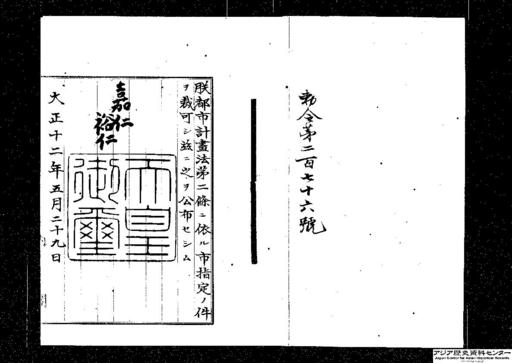 勅令第二百七十六號
朕都市計畫法第二條ニ依ル市指定ノ件
ヲ裁可シ茲ニ之ヲ公布セシム
嘉仁
裕仁
天皇
御璽
大正十二年五月二十九日
アジア歴史資料センター
Japan Center for Asian Historical Records